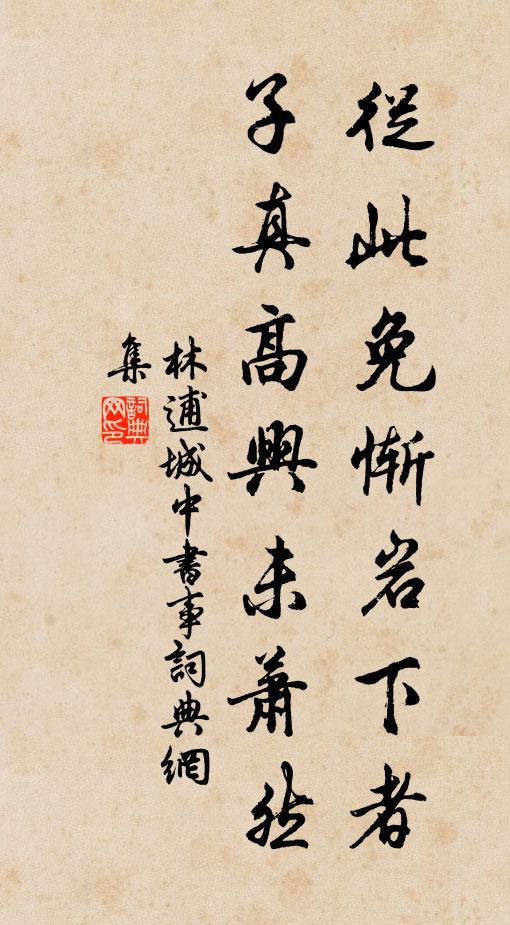 從此免慚岩下者
子真高興未蕭然
林逋城中書事詞典網
集
詞典網印